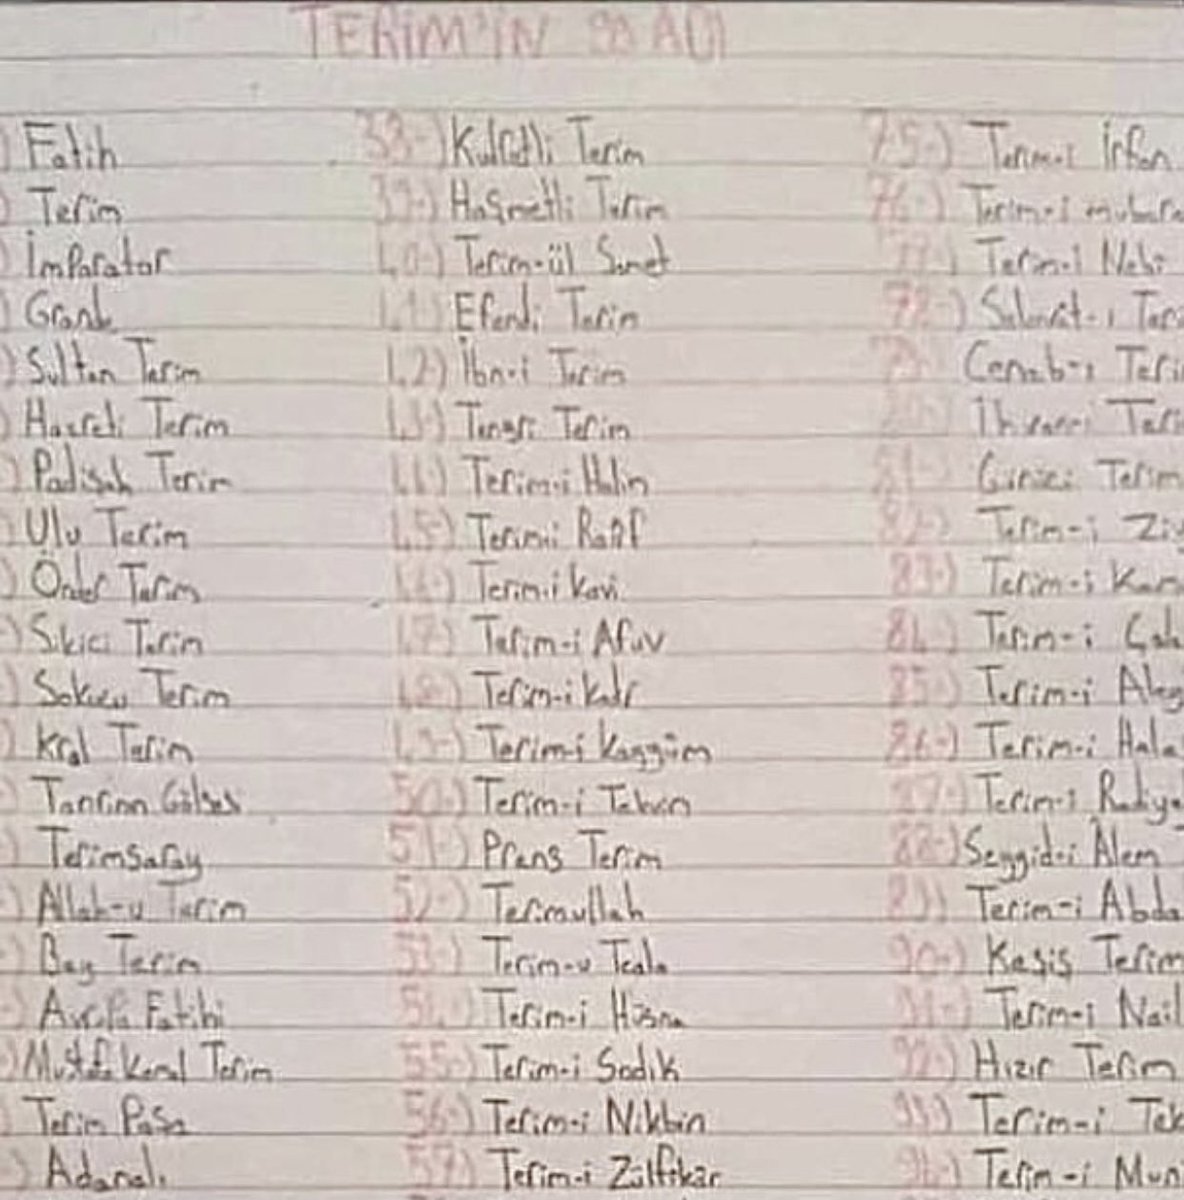 TERİM'İN 99 ADI
Fatih
Terim
İmparator
Grande
Sultan Terim
Hazreti Terim
Padişah Terim
Ulu Terim
Önder Terim
Sikici Terim
Sokucu Terim
Kral Terim
Tanrının Gölgesi
Terimsaray
Allah-u Terim
Bay Terim
Avrupa Fatihi
Mustafa Kemal Terim
Terim Paşa
Adanalı
38-) Kudretli Terim
39-) Haşmetli Terim
40-) Terim-ül Samet
41-) Efendi Terim
42-) İbn-i Terim
43-) Tengri Terim
44-) Terim-i Halim
45-) Terim-i Rauf
46-) Terim-i Kavi
47-) Terim-i Afuv
48-) Terim-i Kadr
49-) Terim-i Kayyüm
50-) Terim-i
51-) Prens Terim
52-) Terimullah
53-) Terim-u Teala
54-) Terim-i Hüsna
55-) Terim-i Sadık
56-) Terim-i Nikbin
57-) Terim-i Zülfikar
75-) Terim-i İrfan
76-) Terim-i mubare
77-) Terim-i Nebi
78-) Ter
79-) Cenab-ı Teri
80-) Teri
81-) Terim
82-) Terim-i Ziy
83-) Terim-i
84-) Terim-i
85-) Terim-i Aley
86-) Terim-i Hala
87-) Terim-i Radiya
88-) Seyyid-i Âlem
89-) Terim-i Abda
90-) Keşiş Terim
91-) Terim-i Nail
92-) Hızır Terim
93-) Terim-i Tek
94-) Terim-i Mun